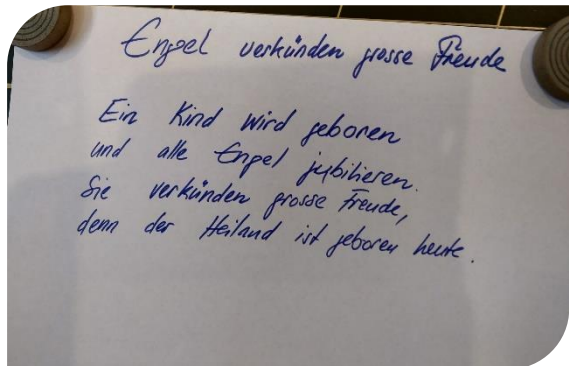 Engel verkünden grosse Freude
Ein Kind wird geboren
und alle Engel jubilieren.
Sie verkünden grosse Freude,
denn der Heiland ist geboren heute.